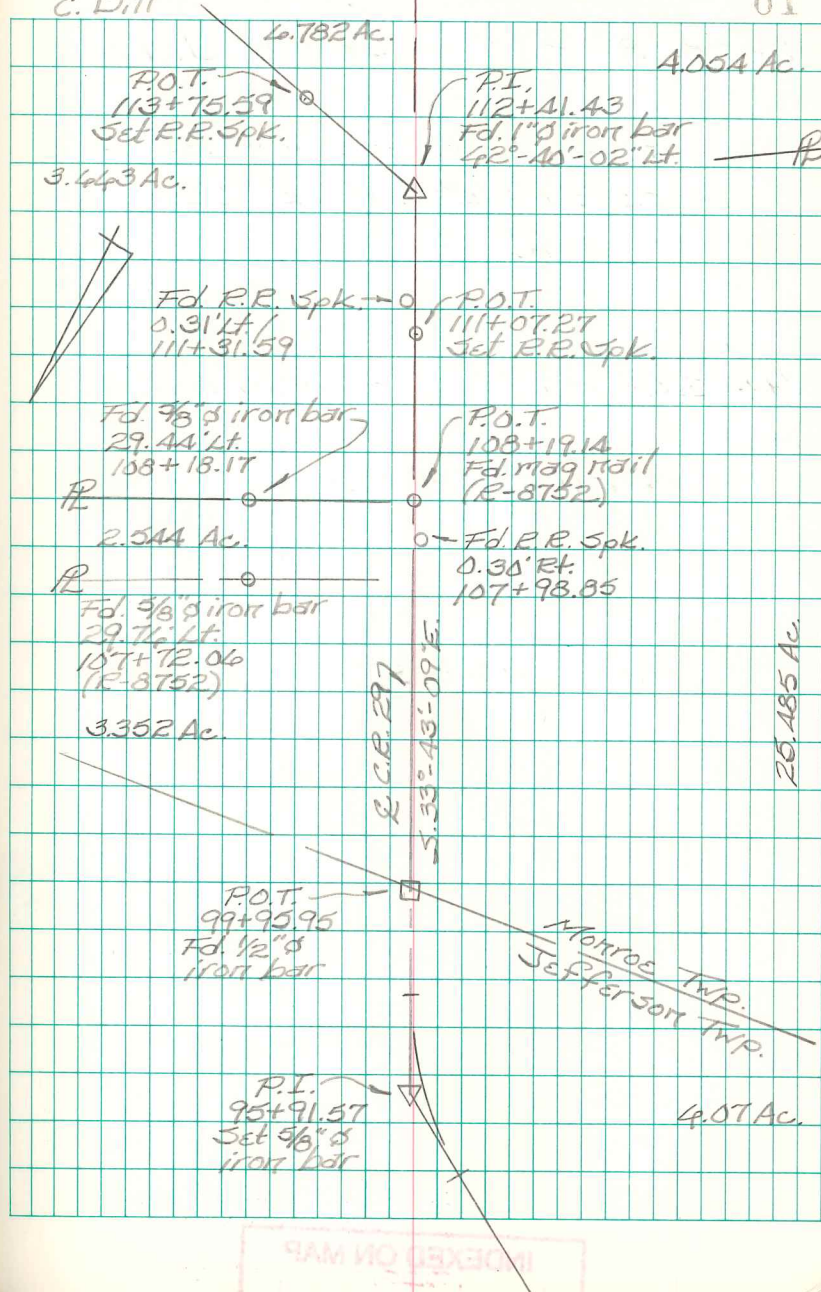 C. Dill
6.782 Ac.
4.054 Ac.
P.O.T.
113+75.59
Set R.R. Spk.
P.I.
112+41.43
Fd. 1"ø iron bar
42°-40'-02" Lt.
PL
3.663 Ac.
Fd. R.R. Spk.
0.31' Lt.
111+31.59
P.O.T.
111+07.27
Set R.R. Spk.
Fd. 5/8"ø iron bar
29.44' Lt.
108+18.17
P.O.T.
108+19.14
Fd. mag nail
(R-8752)
PL
2.544 Ac.
Fd. R.R. Spk.
0.30' Rt.
107+98.85
PL
Fd. 5/8"ø iron bar
29.76' Lt.
107+72.06
(R-8752)
3.352 Ac.
℄ C.R. 297
S.33°-43'-09"E.
25.485 Ac.
P.O.T.
99+95.95
Fd. 1/2"ø
iron bar
Monroe Twp.
Jefferson Twp.
P.I.
95+91.57
Set 5/8"ø
iron bar
4.07 Ac.
INDEXED ON MAP